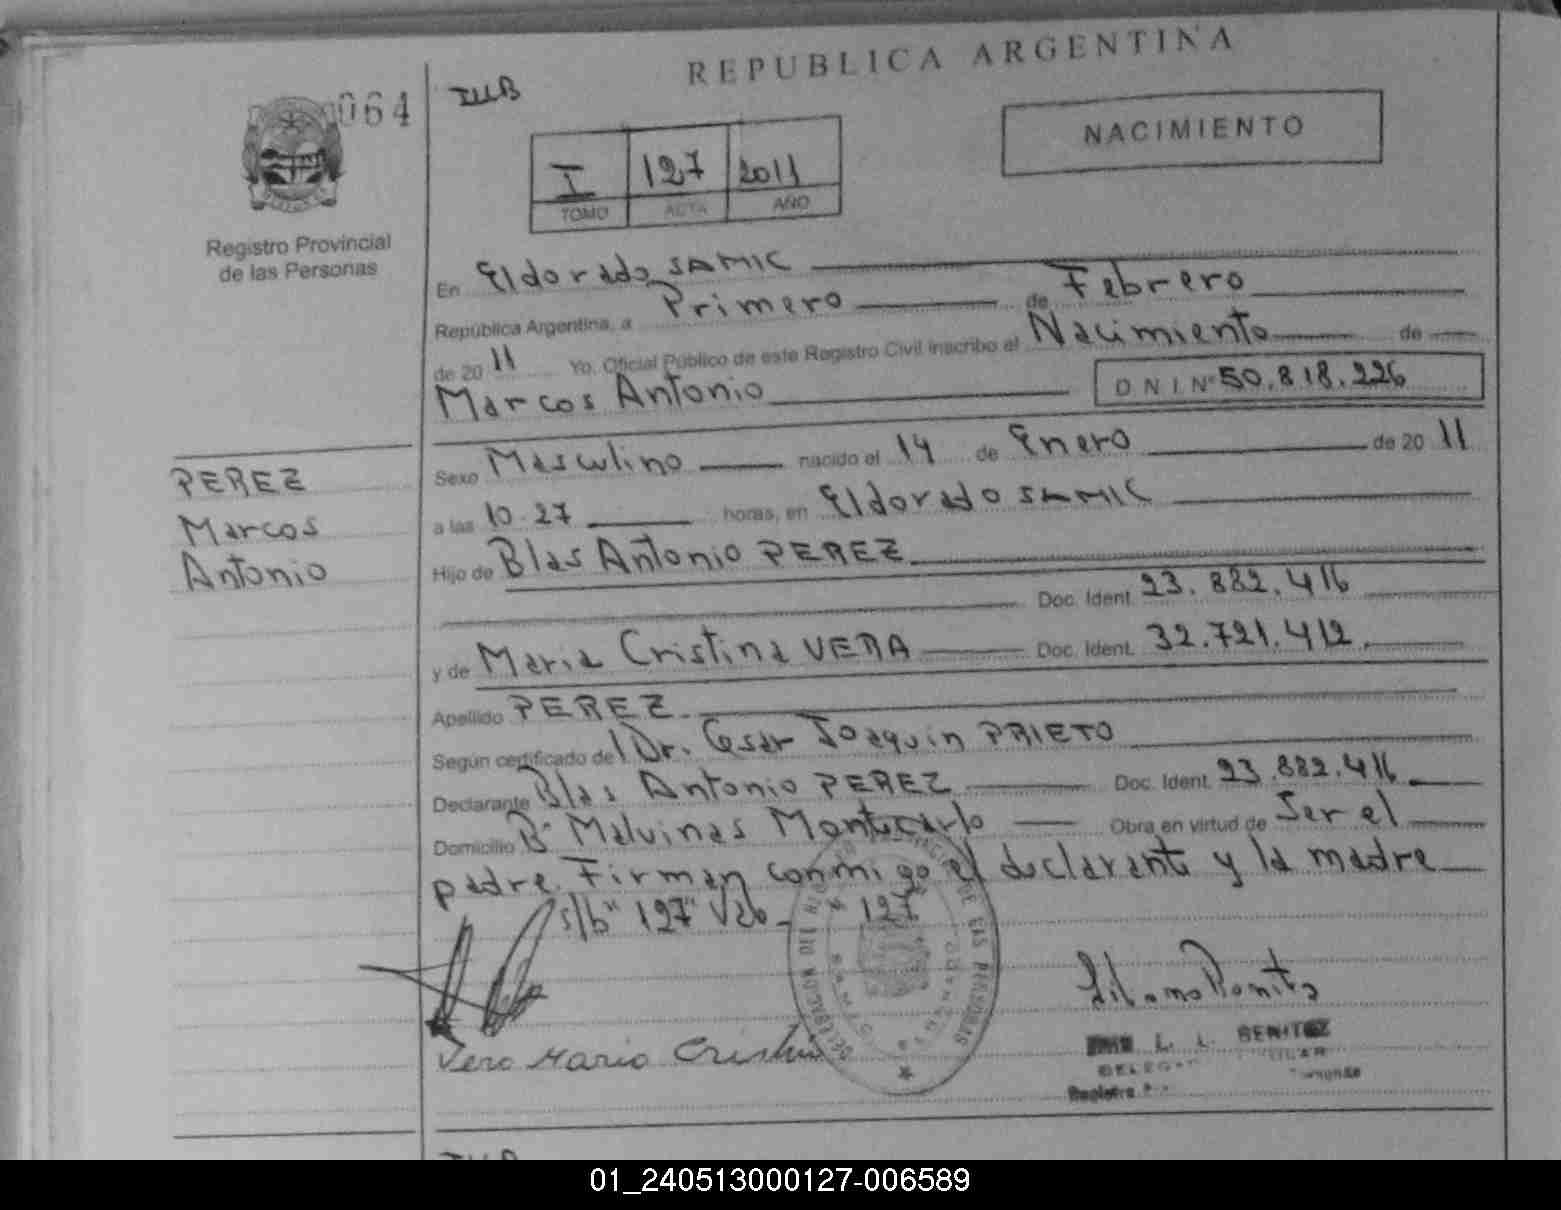 REPUBLICA ARGENTINA
064
IIIB
NACIMIENTO
I 127 2011
TOMO ACTA AÑO
Registro Provincial
de las Personas
En Eldorado SAMIC
República Argentina, a Primero de Febrero
de 20 11 Yo, Oficial Público de este Registro Civil inscribo el Nacimiento de
Marcos Antonio D N I. Nº 50.818.226
PEREZ
Marcos
Antonio
Sexo Masculino nacido el 14 de Enero de 20 11
a las 10.27 horas, en Eldorado SAMIC
Hijo de Blas Antonio PEREZ
Doc. Ident. 23.882.416
y de Maria Cristina VERA Doc. Ident. 32.721.412.
Apellido PEREZ
Según certificado del Dr. Cesar Joaquin PRIETO
Declarante Blas Antonio PEREZ Doc. Ident. 23.882.416
Domicilio Bº Malvinas Montecarlo Obra en virtud de Ser el
padre. Firman conmigo el declarante y la madre
s/b "127" Vale 127
Vera Maria Cristina
DELEGACION DE LAS PERSONAS
L. L. BENITEZ
Registro
01_240513000127-006589